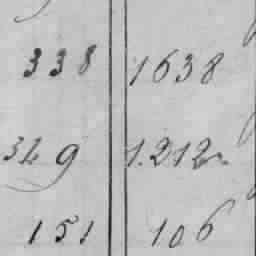 338 1638
349 1.212
151 106